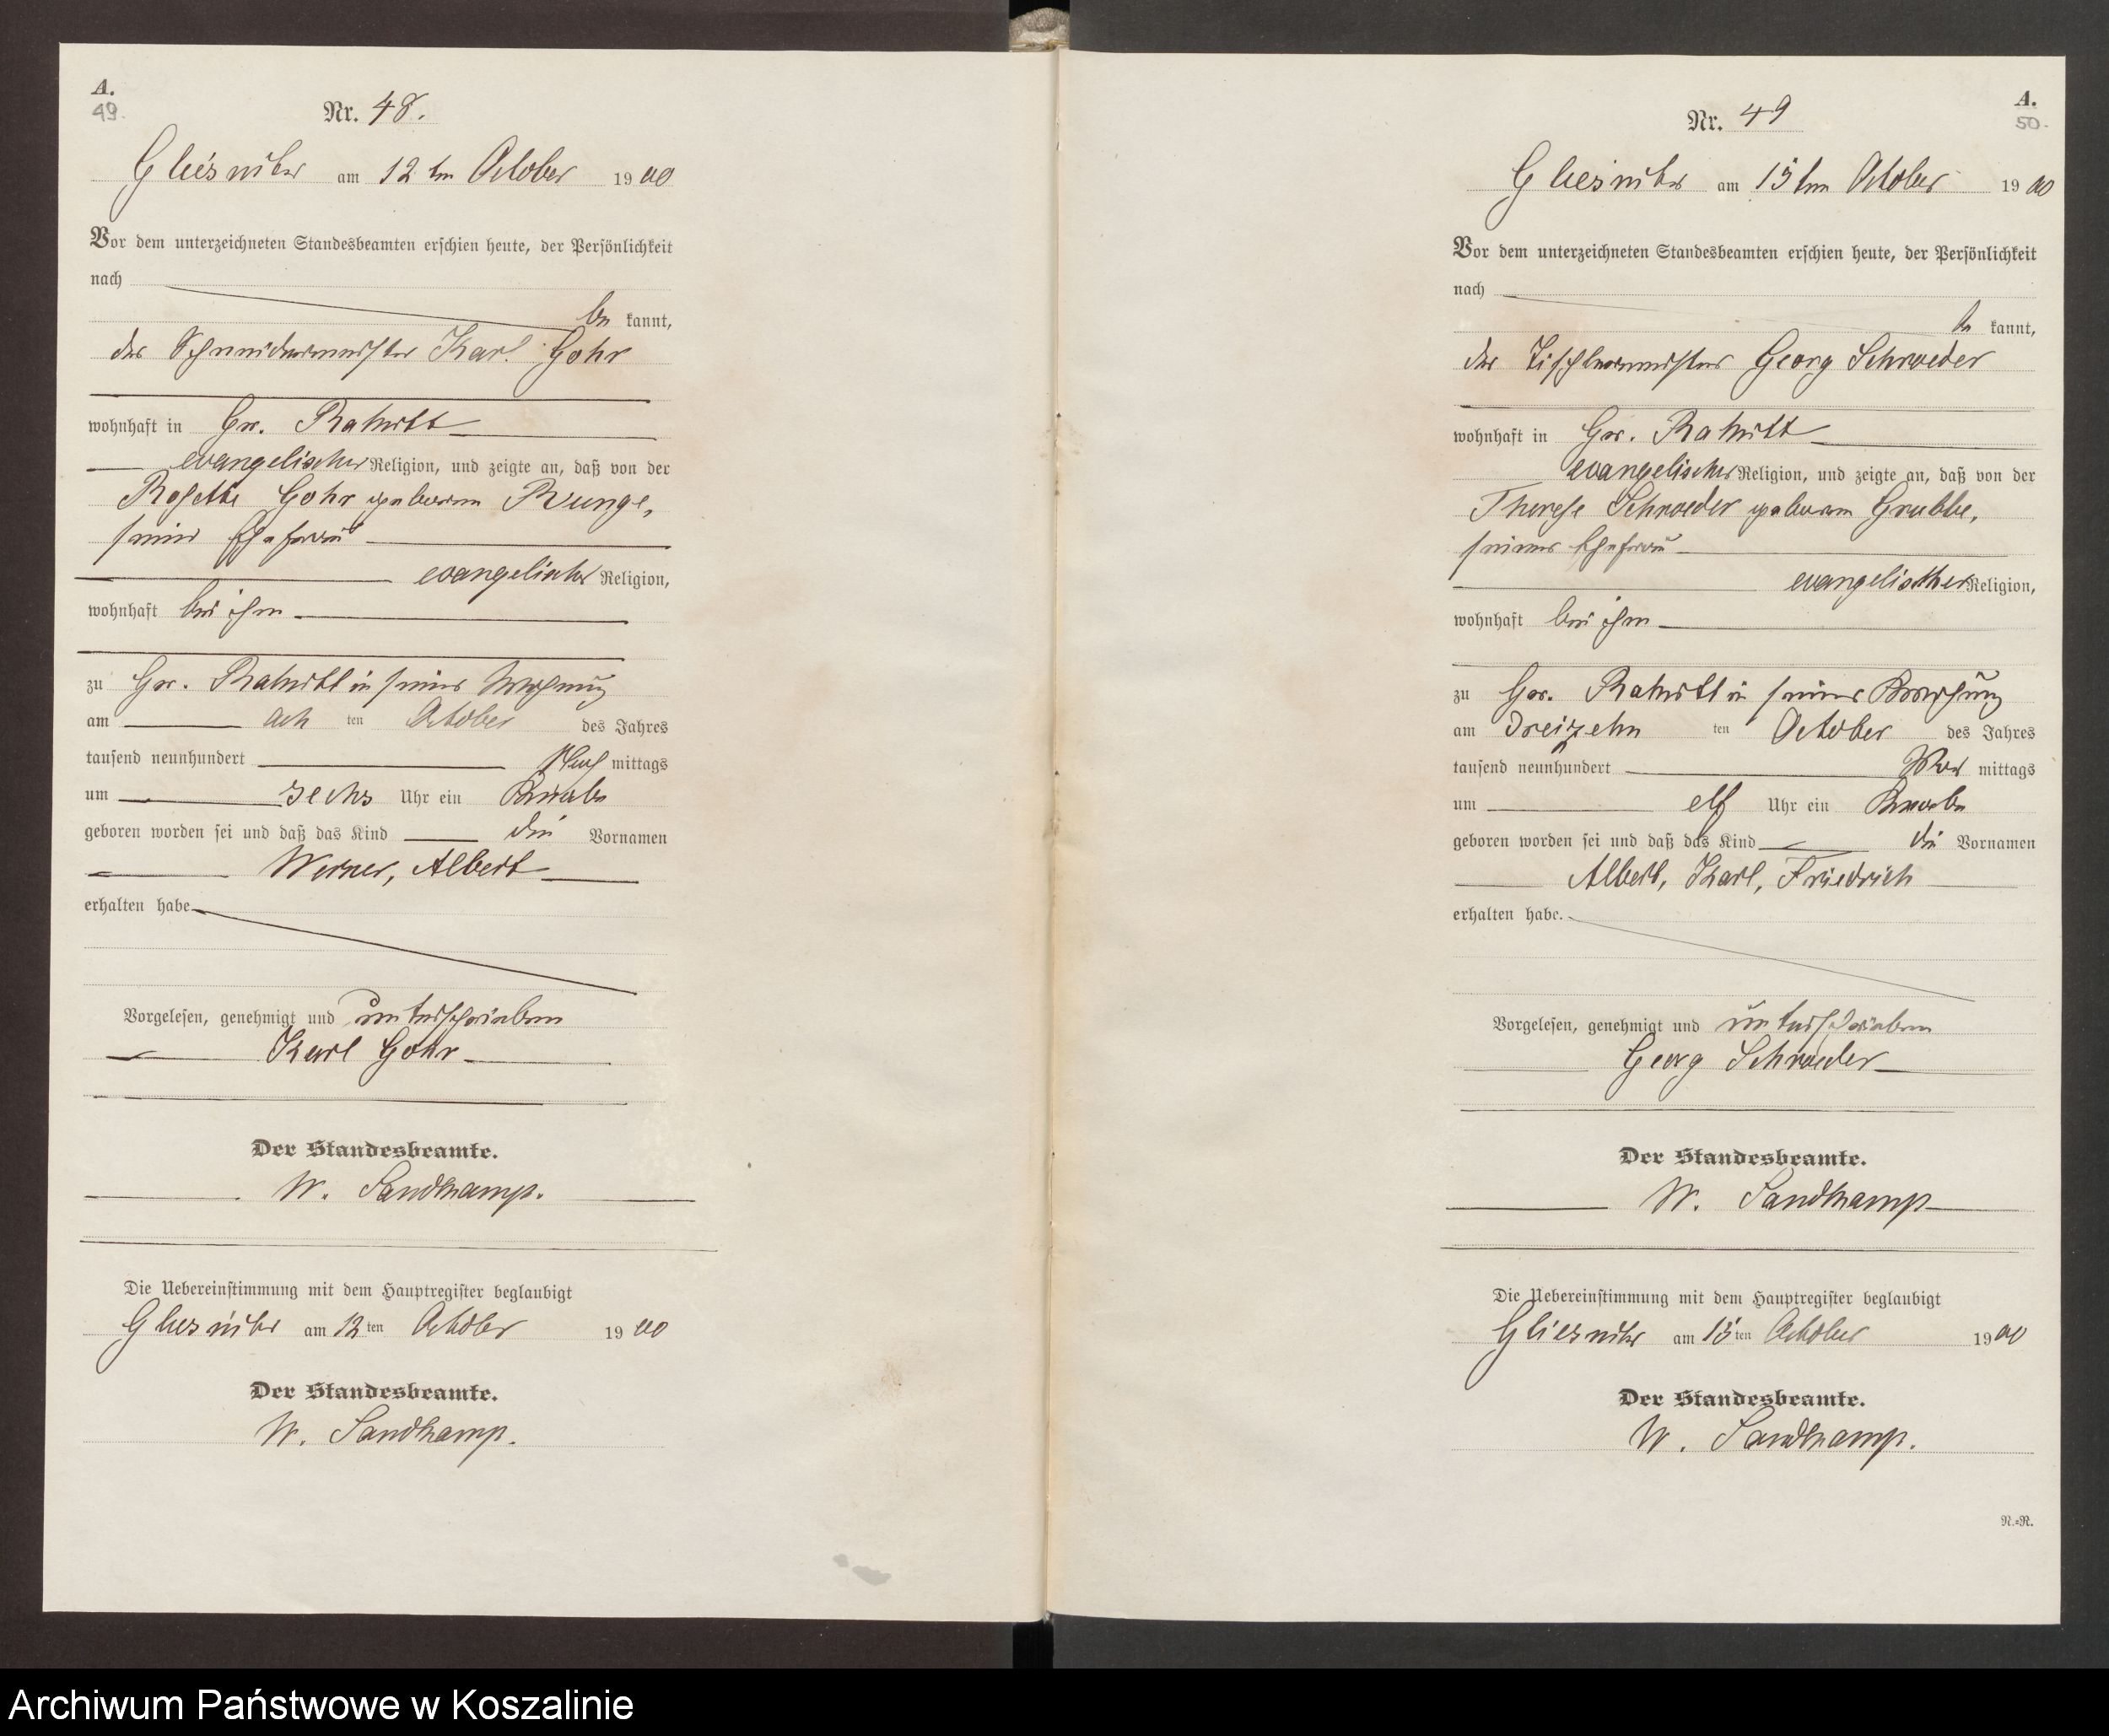 A.
49.
Nr. 48.
Gliesnitz am 12ten October 1900
Vor dem unterzeichneten Standesbeamten erschien heute, der Persönlichkeit
nach
be kannt,
der Schneidermeister Karl Gohr
wohnhaft in Gr. Rakitt
evangelischer Religion, und zeigte an, daß von der
Rosette Gohr geborenen Runge,
seiner Ehefrau
evangelischer Religion,
wohnhaft bei ihm
zu Gr. Rakitt in seiner Wohnung
am ach ten October des Jahres
tausend neunhundert Nach mittags
um sechs Uhr ein Knabe
geboren worden sei und daß das Kind die Vornamen
Werner, Albert
erhalten habe
Vorgelesen, genehmigt und unterschrieben
Karl Gohr
Der Standesbeamte.
W. Sandkamp.
Die Uebereinstimmung mit dem Hauptregister beglaubigt
Gliesnitz am 12ten October 1900
Der Standesbeamte.
W. Sandkamp.
A.
50.
Nr. 49
Gliesnitz am 15ten October 1900
Vor dem unterzeichneten Standesbeamten erschien heute, der Persönlichkeit
nach
be kannt,
der Tischlermeister Georg Schroeder
wohnhaft in Gr. Rakitt
evangelischer Religion, und zeigte an, daß von der
Therese Schroeder geborenen Grubbe,
seiner Ehefrau
evangelischer Religion,
wohnhaft bei ihm
zu Gr. Rakitt in seiner Wohnung
am dreizehn ten October des Jahres
tausend neunhundert Vor mittags
um elf Uhr ein Knabe
geboren worden sei und daß das Kind die Vornamen
Albert, Karl, Friedrich
erhalten habe.
Vorgelesen, genehmigt und unterschrieben
Georg Schroeder
Der Standesbeamte.
W. Sandkamp
Die Uebereinstimmung mit dem Hauptregister beglaubigt
Gliesnitz am 15ten October 1900
Der Standesbeamte.
W. Sandkamp.
N.=R.
Archiwum Państwowe w Koszalinie